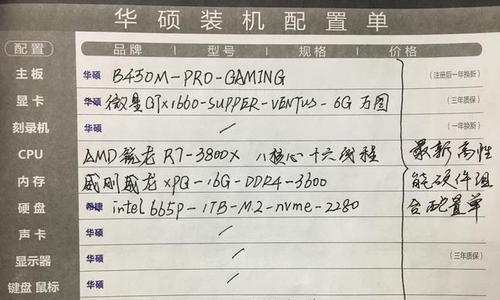 华硕装机配置单
配置 品牌 型号 规格 价格
主板 华硕 B450M-PRO-GAMING (注册后一年换新)
显卡 华硕 微星GTx1660-SUPPER-VENTUS-6G 万图 (三年质保)
刻录机 华硕 / (一年换新)
CPU AMD 锐龙 R7-3800X 八核心十六线程 最新高性
内存 威刚威龙 XPG-16G-DDR4-3600 能硬件组
硬盘 希捷 intel 665p-1TB-M2-nvme-2280 合配置单
声卡 华硕 /
显示器 华硕 / (三年质保)
键盘 鼠标 华硕 /